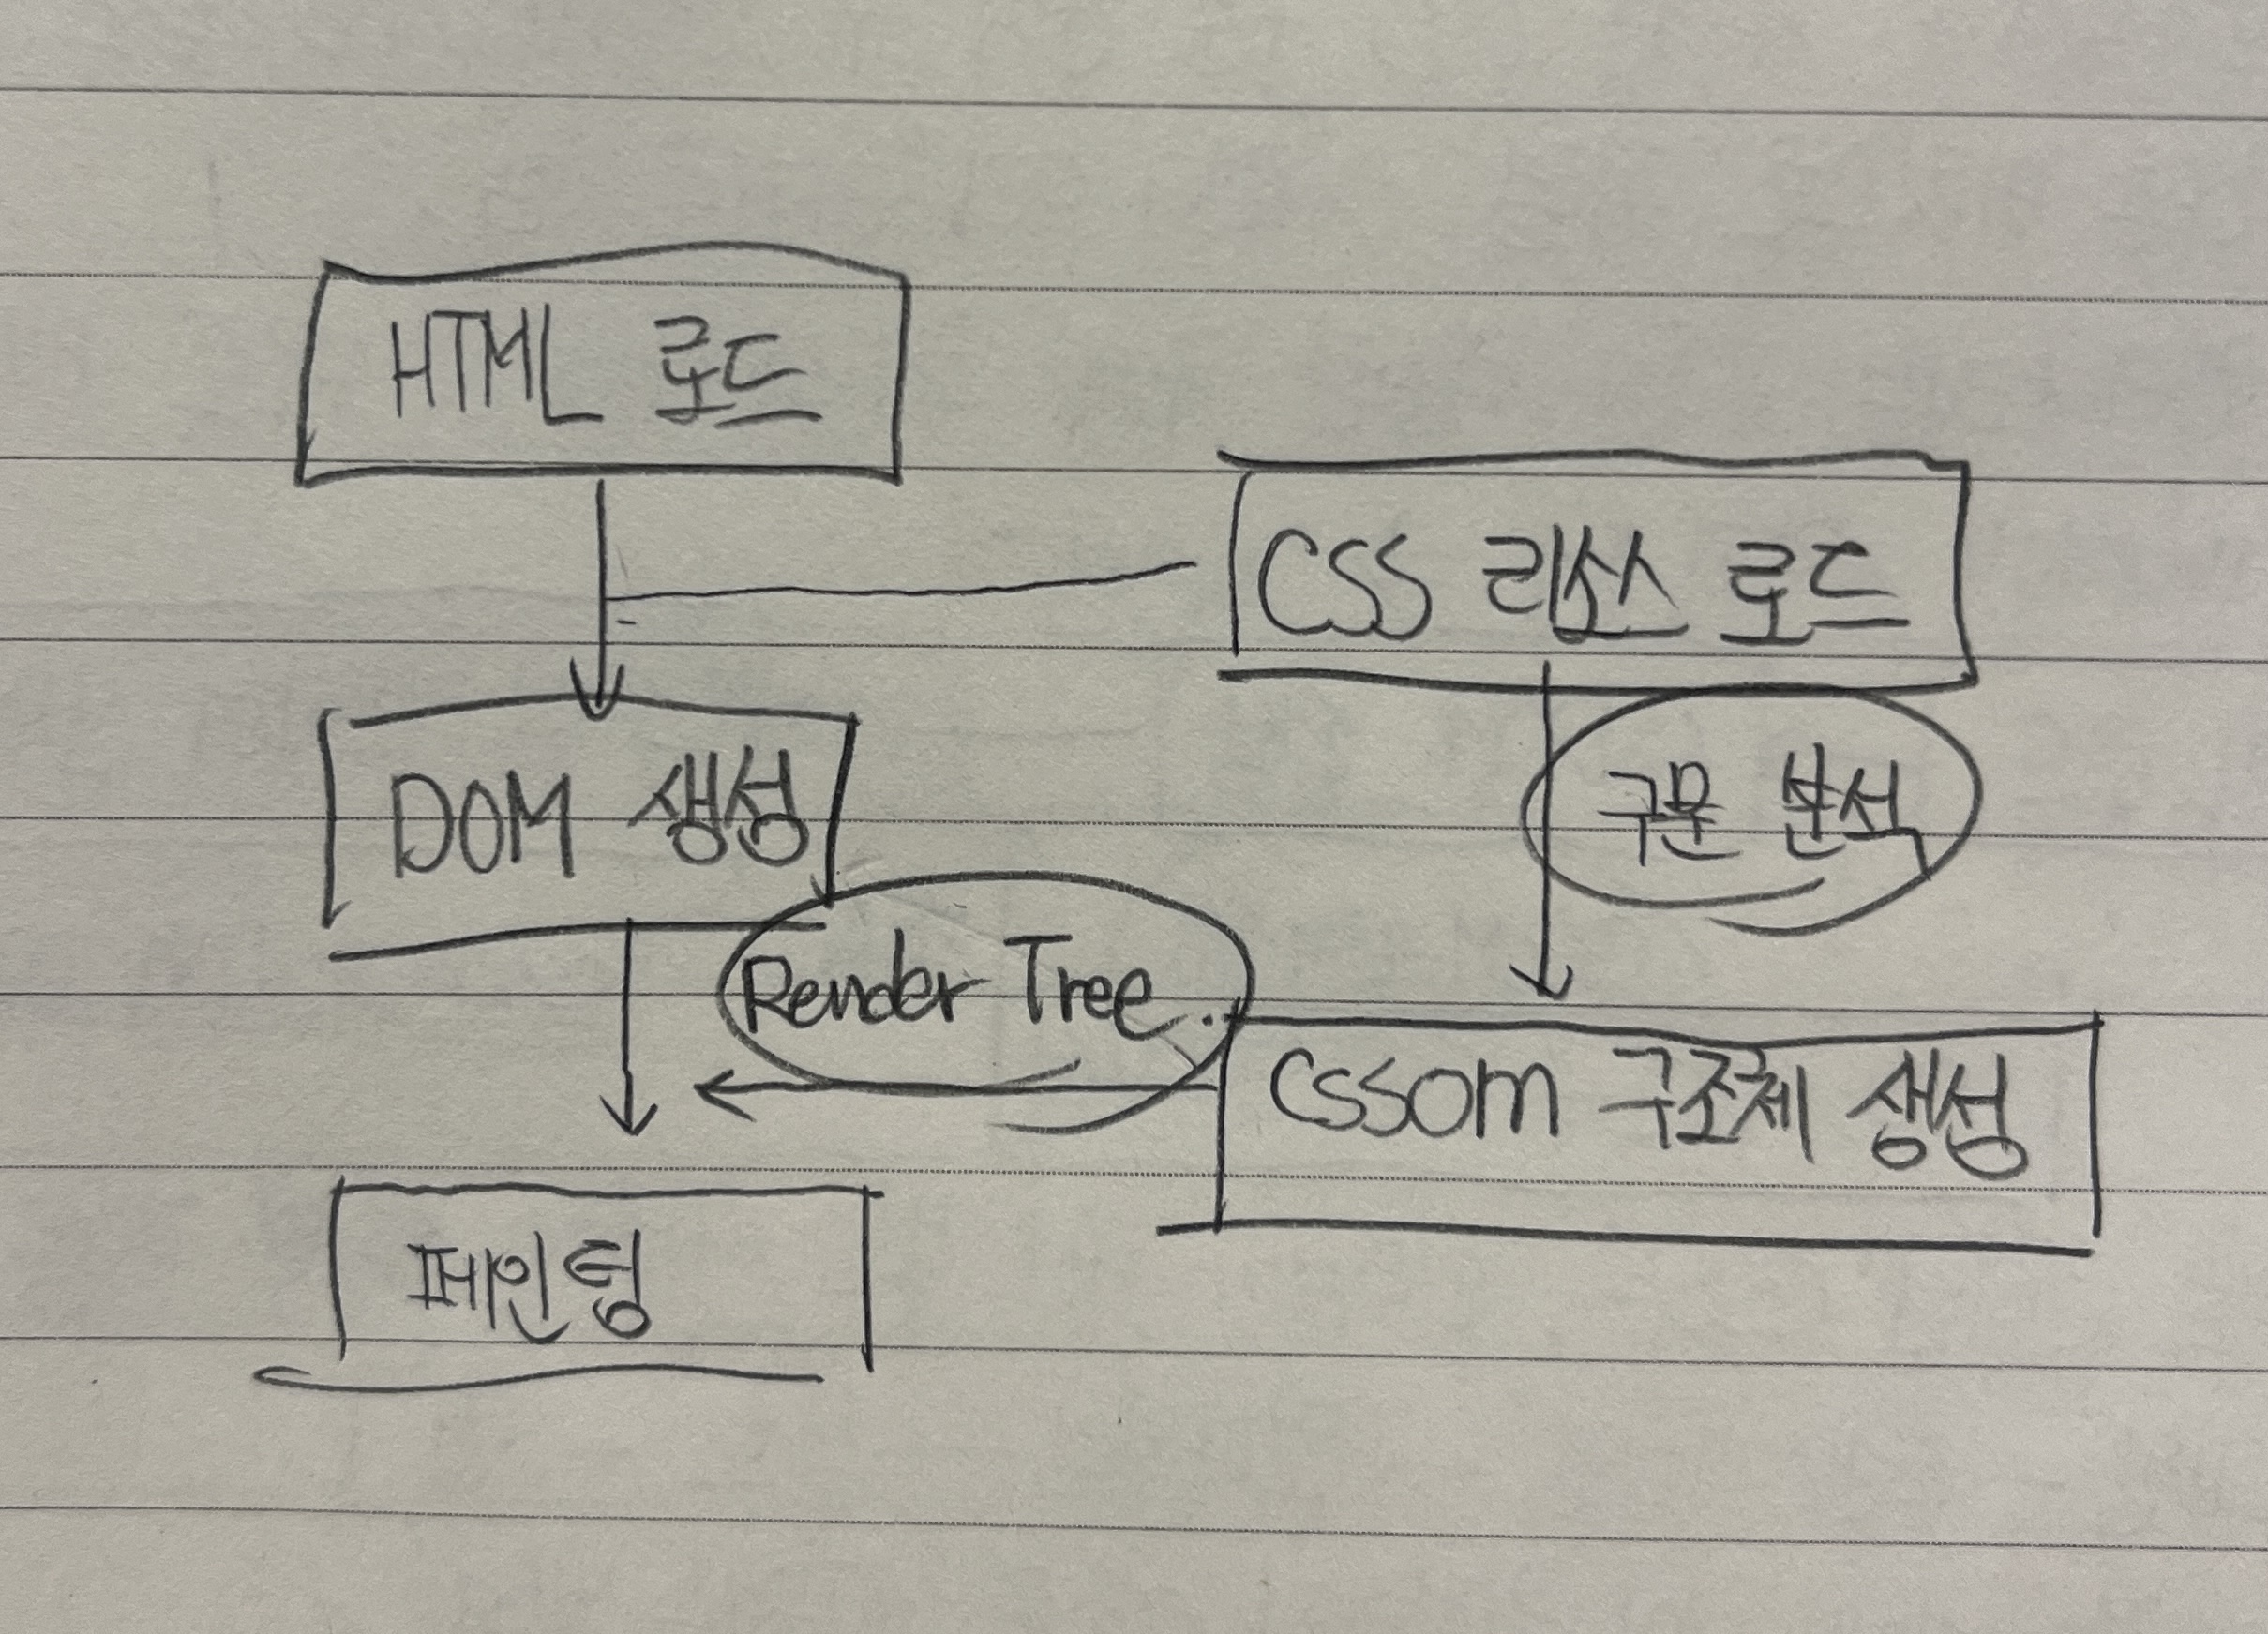 HTML 로드
CSS 리소스 로드
구문 분석
DOM 생성
Render Tree
CSSOM 구조체 생성
페인팅